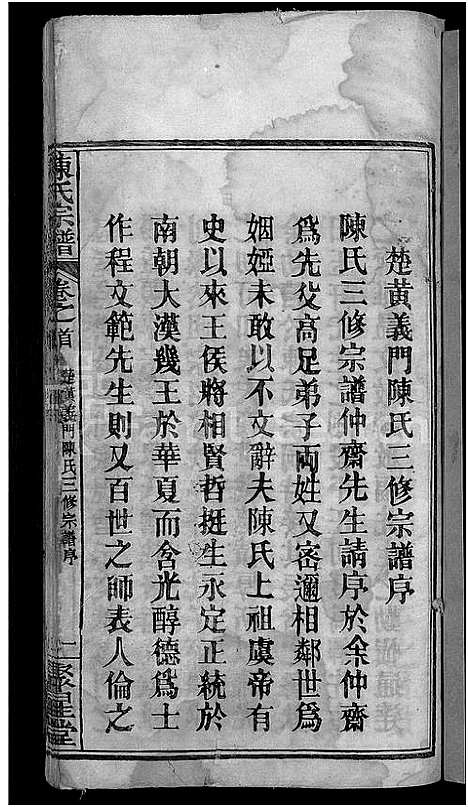 楚黃義門陳氏三修宗譜序
陳氏三修宗譜仲齋先生請序於余仲齋
爲先父高足弟子兩姓又密邇相鄰世爲
姻婭未敢以不文辭夫陳氏上祖虞帝有
史以來王侯將相賢哲挺生永定正統於
南朝大漢幾王於華夏而含光醇德爲士
作程文範先生則又百世之師表人倫之
陳氏宗譜
卷之首
楚黃義門陳氏三修宗譜序
一
聚星堂